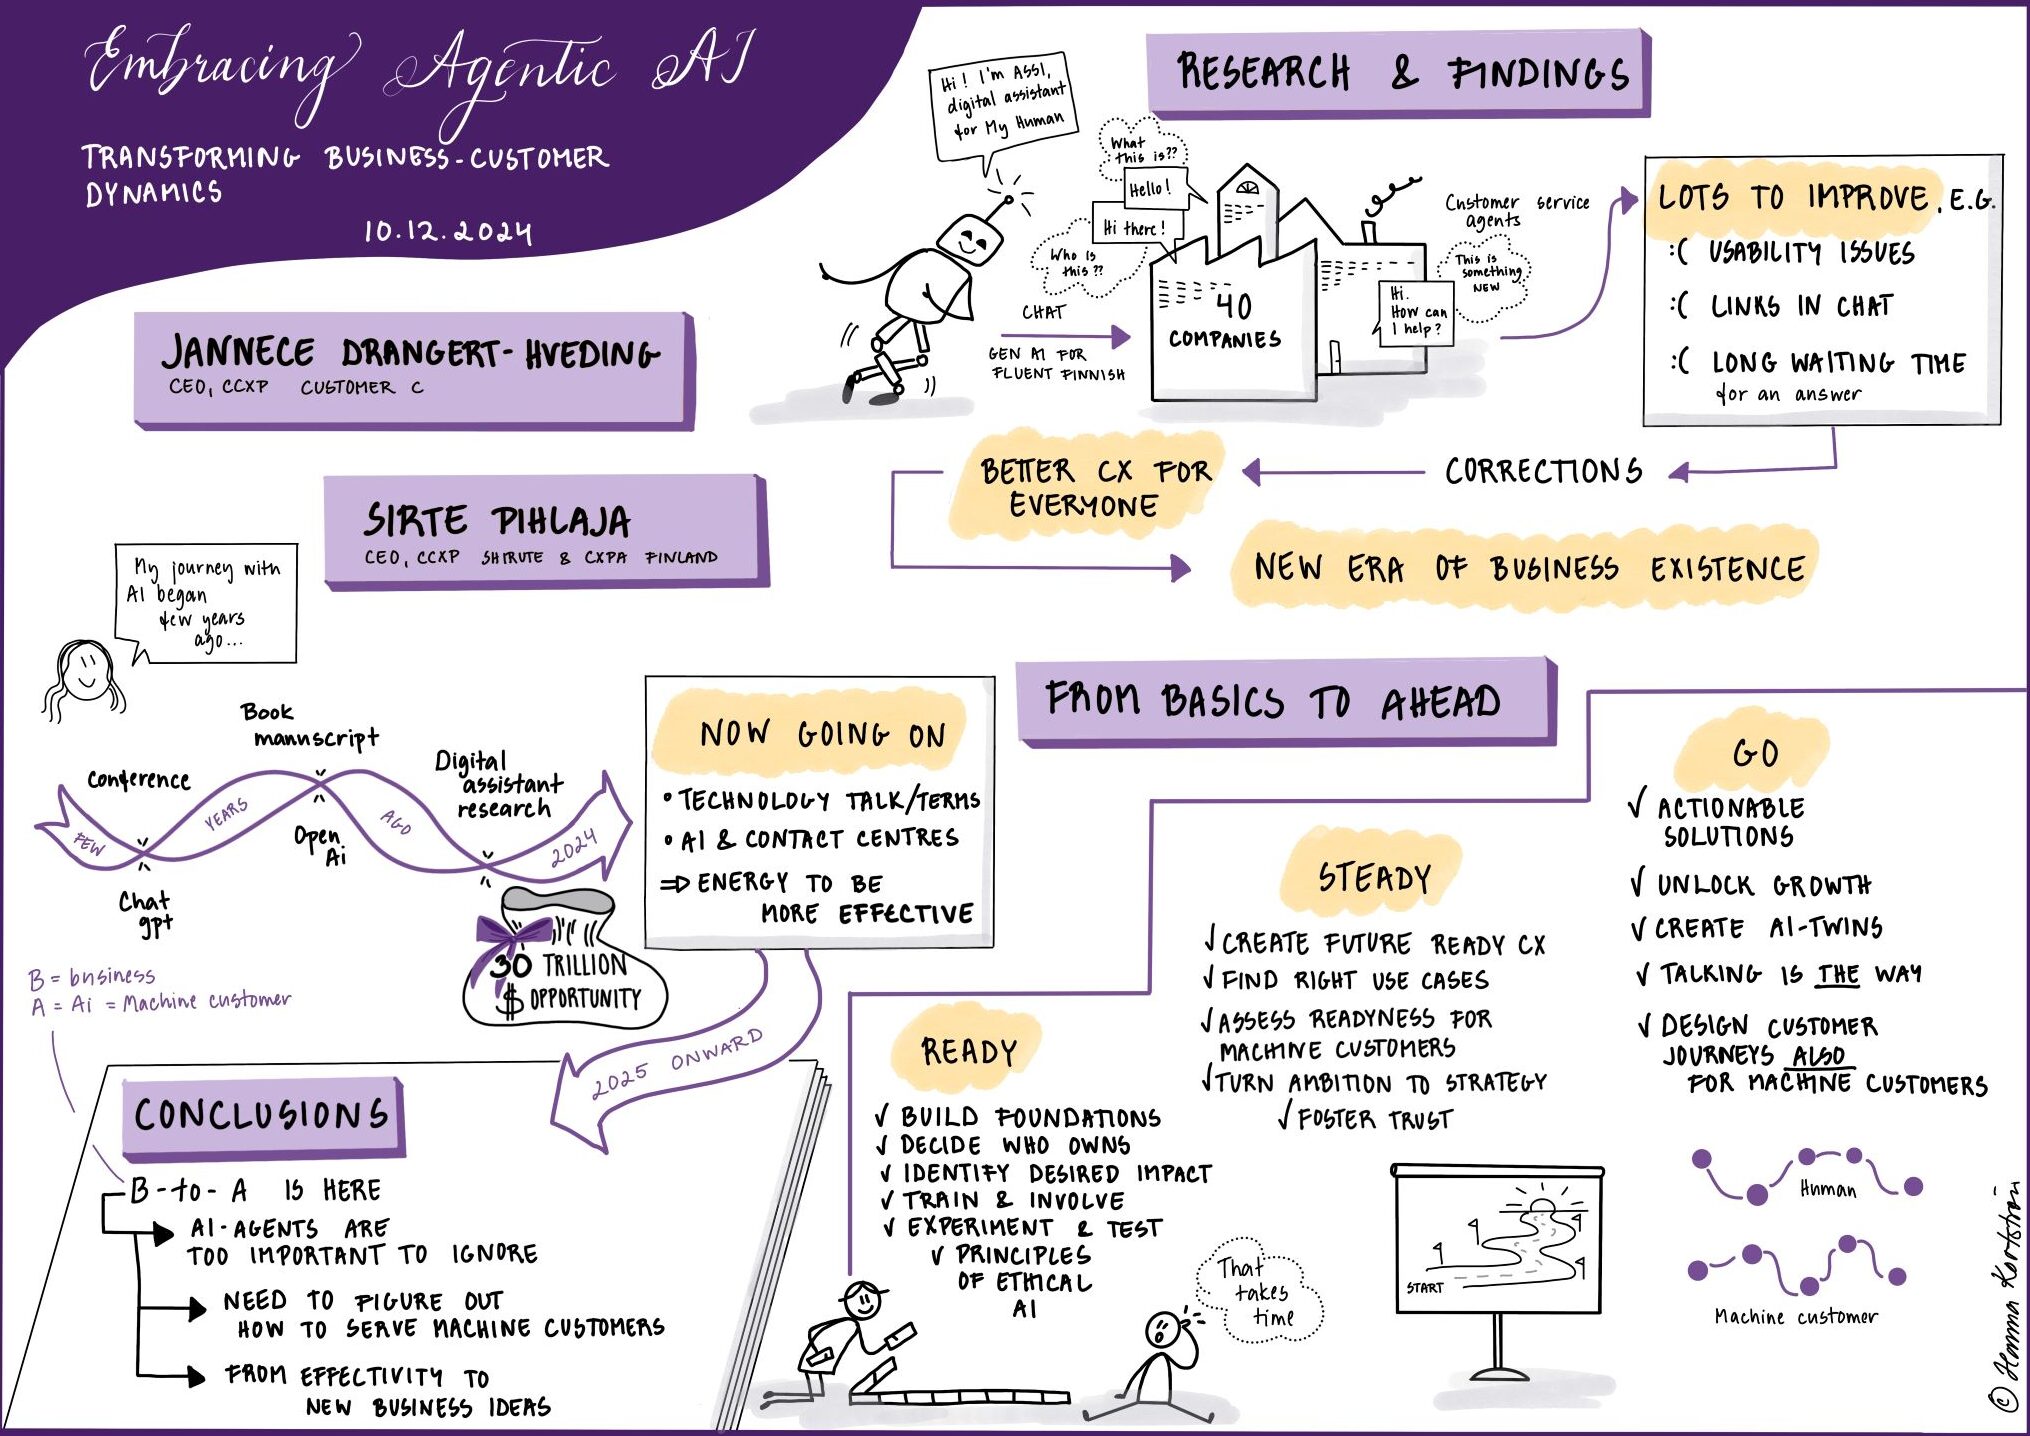 Embracing Agentic AI
TRANSFORMING BUSINESS-CUSTOMER
DYNAMICS
10.12.2024
JANNECE DRANGERT-HVEDING
CEO, CCXP CUSTOMER C
SIRTE PIHLAJA
CEO, CCXP SHIRUTE & CXPA FINLAND
RESEARCH & FINDINGS
Hi! I'm ASSI,
digital assistant
for My Human
What
this is??
Hello!
Hi there!
Who is
this??
CHAT
GEN AI FOR
FLUENT FINNISH
40
COMPANIES
Customer service
agents
This is
something
NEW
Hi.
How can
I help?
LOTS TO IMPROVE, E.G.
:( USABILITY ISSUES
:( LINKS IN CHAT
:( LONG WAITING TIME
for an answer
CORRECTIONS
BETTER CX FOR
EVERYONE
NEW ERA OF BUSINESS EXISTENCE
My journey with
AI began
few years
ago...
Book
manuscript
Conference
Digital
assistant
research
FEW
YEARS
AGO
2024
Open
Ai
Chat
gpt
30 TRILLION
$ OPPORTUNITY
NOW GOING ON
• TECHNOLOGY TALK/TERMS
• AI & CONTACT CENTRES
⇒ ENERGY TO BE
MORE EFFECTIVE
2025 ONWARD
B = business
A = Ai = Machine customer
CONCLUSIONS
B-to-A IS HERE
AI-AGENTS ARE
TOO IMPORTANT TO IGNORE
NEED TO FIGURE OUT
HOW TO SERVE MACHINE CUSTOMERS
FROM EFFECTIVITY TO
NEW BUSINESS IDEAS
FROM BASICS TO AHEAD
READY
✓ BUILD FOUNDATIONS
✓ DECIDE WHO OWNS
✓ IDENTIFY DESIRED IMPACT
✓ TRAIN & INVOLVE
✓ EXPERIMENT & TEST
✓ PRINCIPLES
OF ETHICAL
AI
That
takes
time
STEADY
✓ CREATE FUTURE READY CX
✓ FIND RIGHT USE CASES
✓ ASSESS READYNESS FOR
MACHINE CUSTOMERS
✓ TURN AMBITION TO STRATEGY
✓ FOSTER TRUST
START
GO
✓ ACTIONABLE
SOLUTIONS
✓ UNLOCK GROWTH
✓ CREATE AI-TWINS
✓ TALKING IS THE WAY
✓ DESIGN CUSTOMER
JOURNEYS ALSO
FOR MACHINE CUSTOMERS
Human
Machine customer
© Hanna Kortström